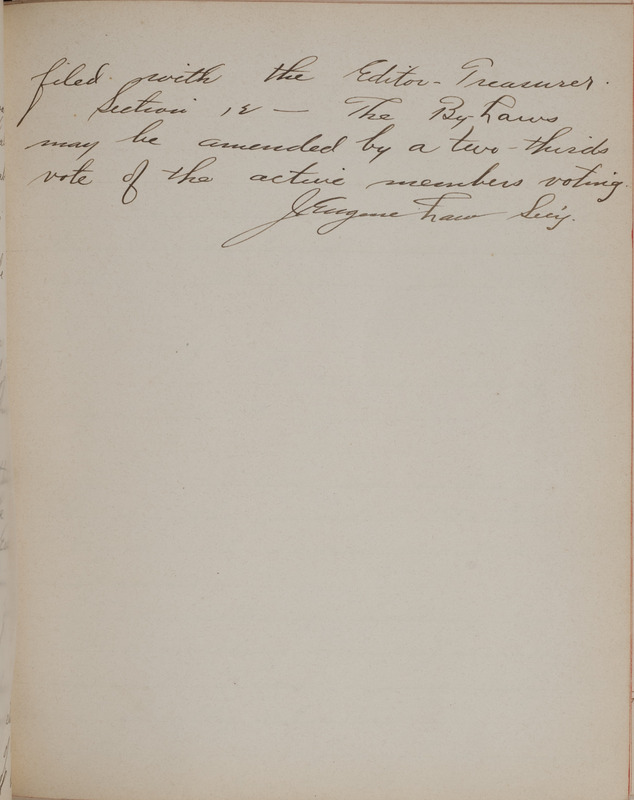 filed with the Editor-Treasurer.
Section 12 — The By-Laws
may be amended by a two-thirds
vote of the active members voting.
J Eugene Law Sec'y.